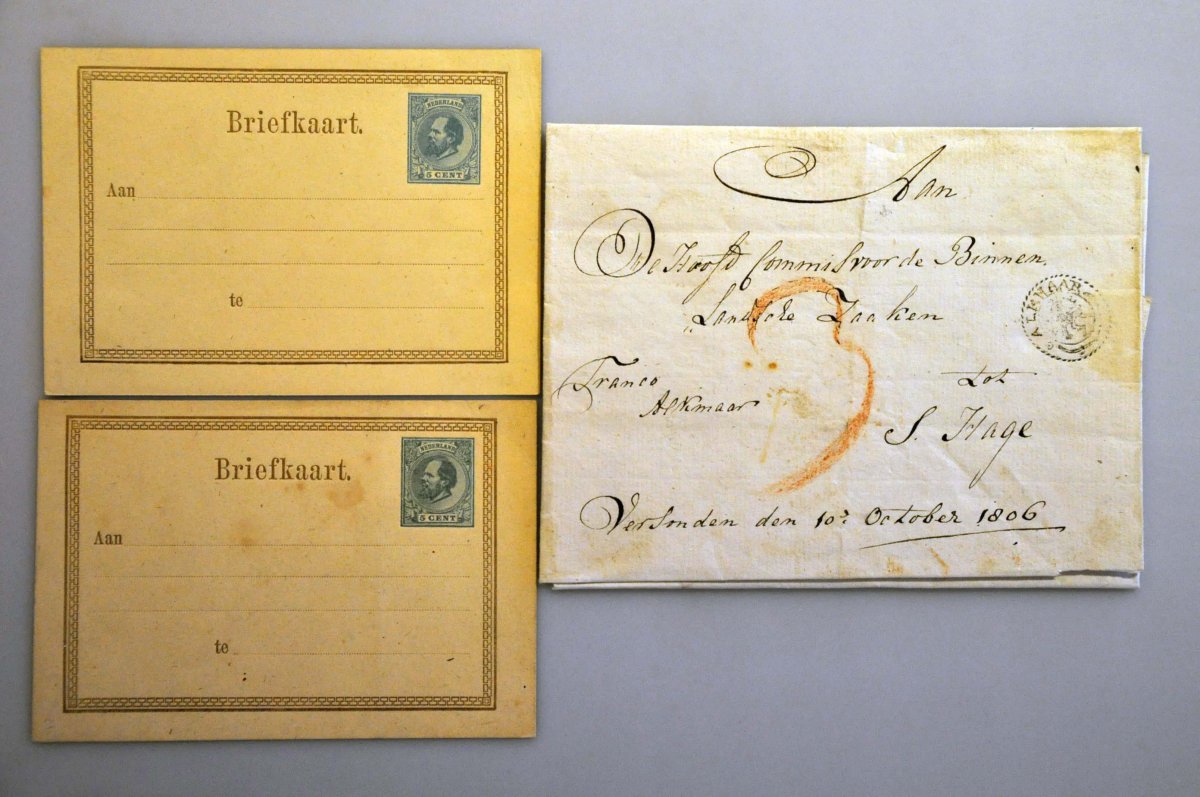 Briefkaart.
NEDERLAND
5 CENT
Aan
te
Briefkaart.
NEDERLAND
5 CENT
Aan
te
Aan
De Hoofd Commis voor de Binnen
Landsche Zaaken
ALKMAAR
Franco
Alkmaar
tot
S. Hage
3
Versonden den 10: October 1806